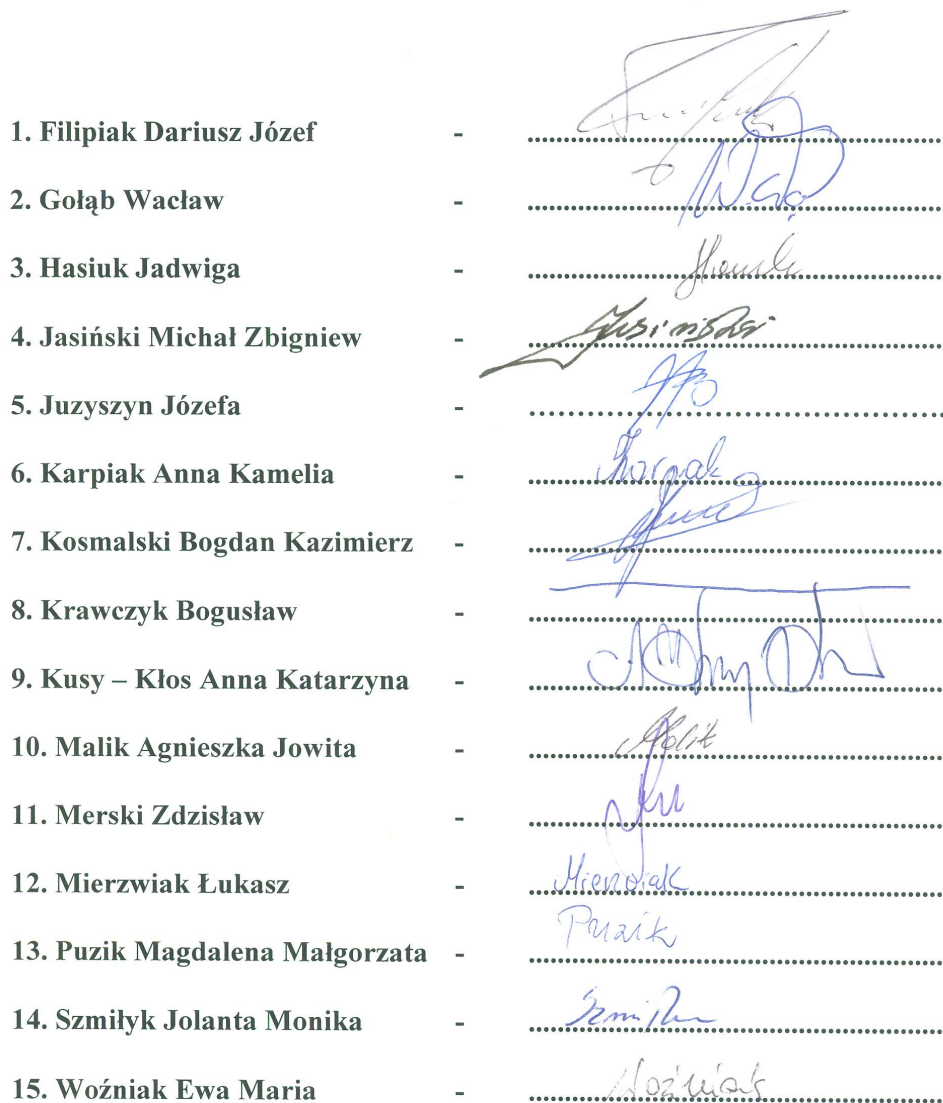 1. Filipiak Dariusz Józef -
2. Gołąb Wacław -
3. Hasiuk Jadwiga -
4. Jasiński Michał Zbigniew - Jasiński
5. Juzyszyn Józefa -
6. Karpiak Anna Kamelia -
7. Kosmalski Bogdan Kazimierz -
8. Krawczyk Bogusław -
9. Kusy – Kłos Anna Katarzyna -
10. Malik Agnieszka Jowita - Malik
11. Merski Zdzisław -
12. Mierzwiak Łukasz - Mierzwiak
13. Puzik Magdalena Małgorzata - Puzik
14. Szmiłyk Jolanta Monika -
15. Woźniak Ewa Maria - Woźniak